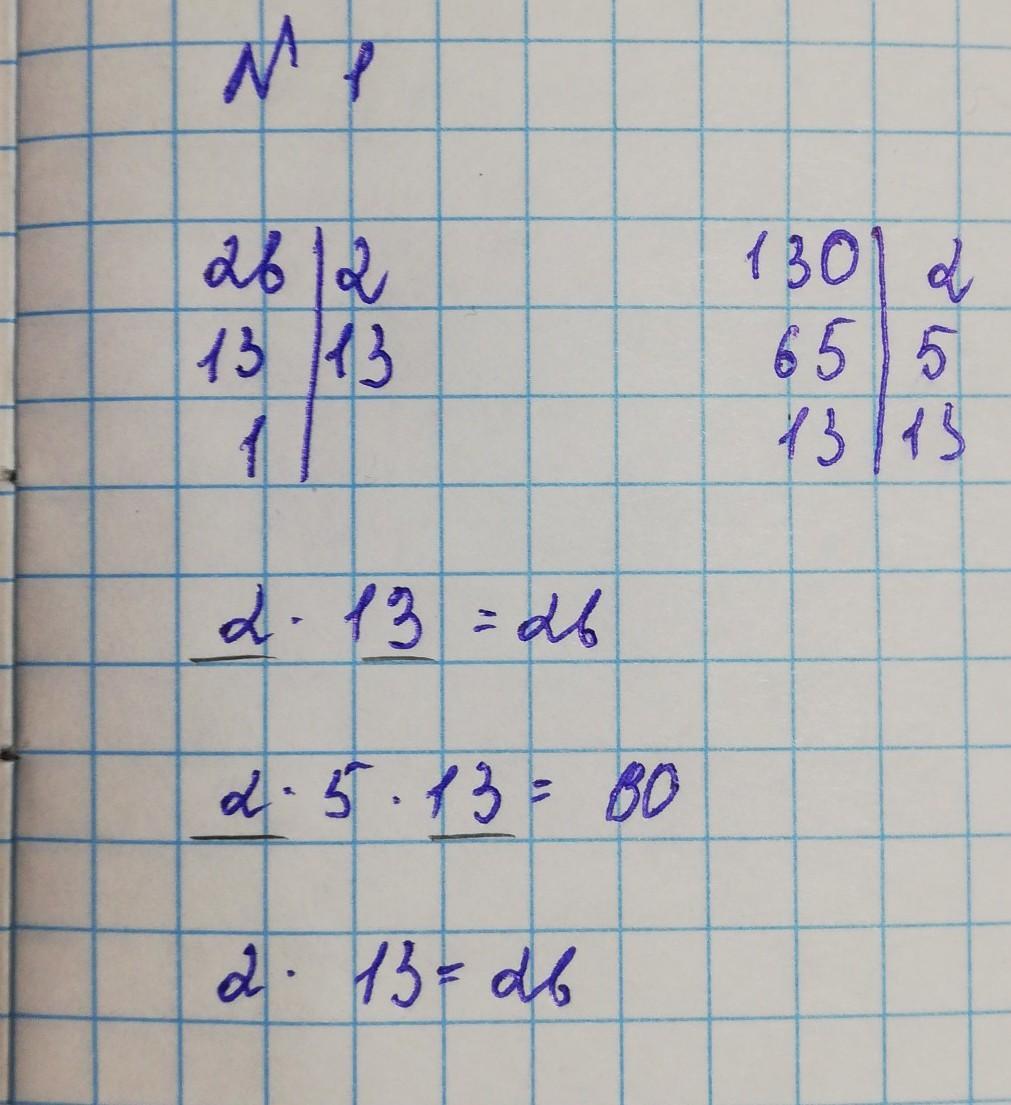 № 1
26 | 2
13 | 13
1 |
130 | 2
65 | 5
13 | 13
2 · 13 = 26
2 · 5 · 13 = 130
2 · 13 = 26